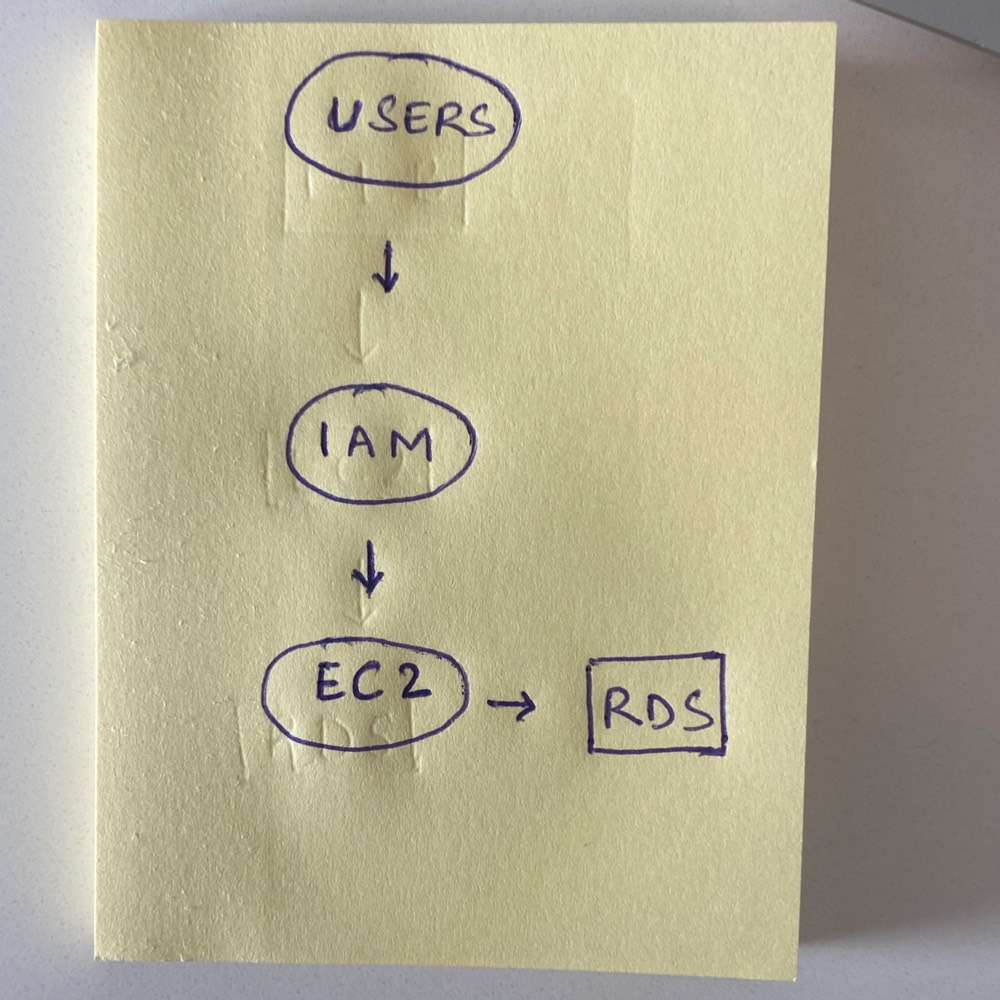 USERS
↓
IAM
↓
EC2 → RDS